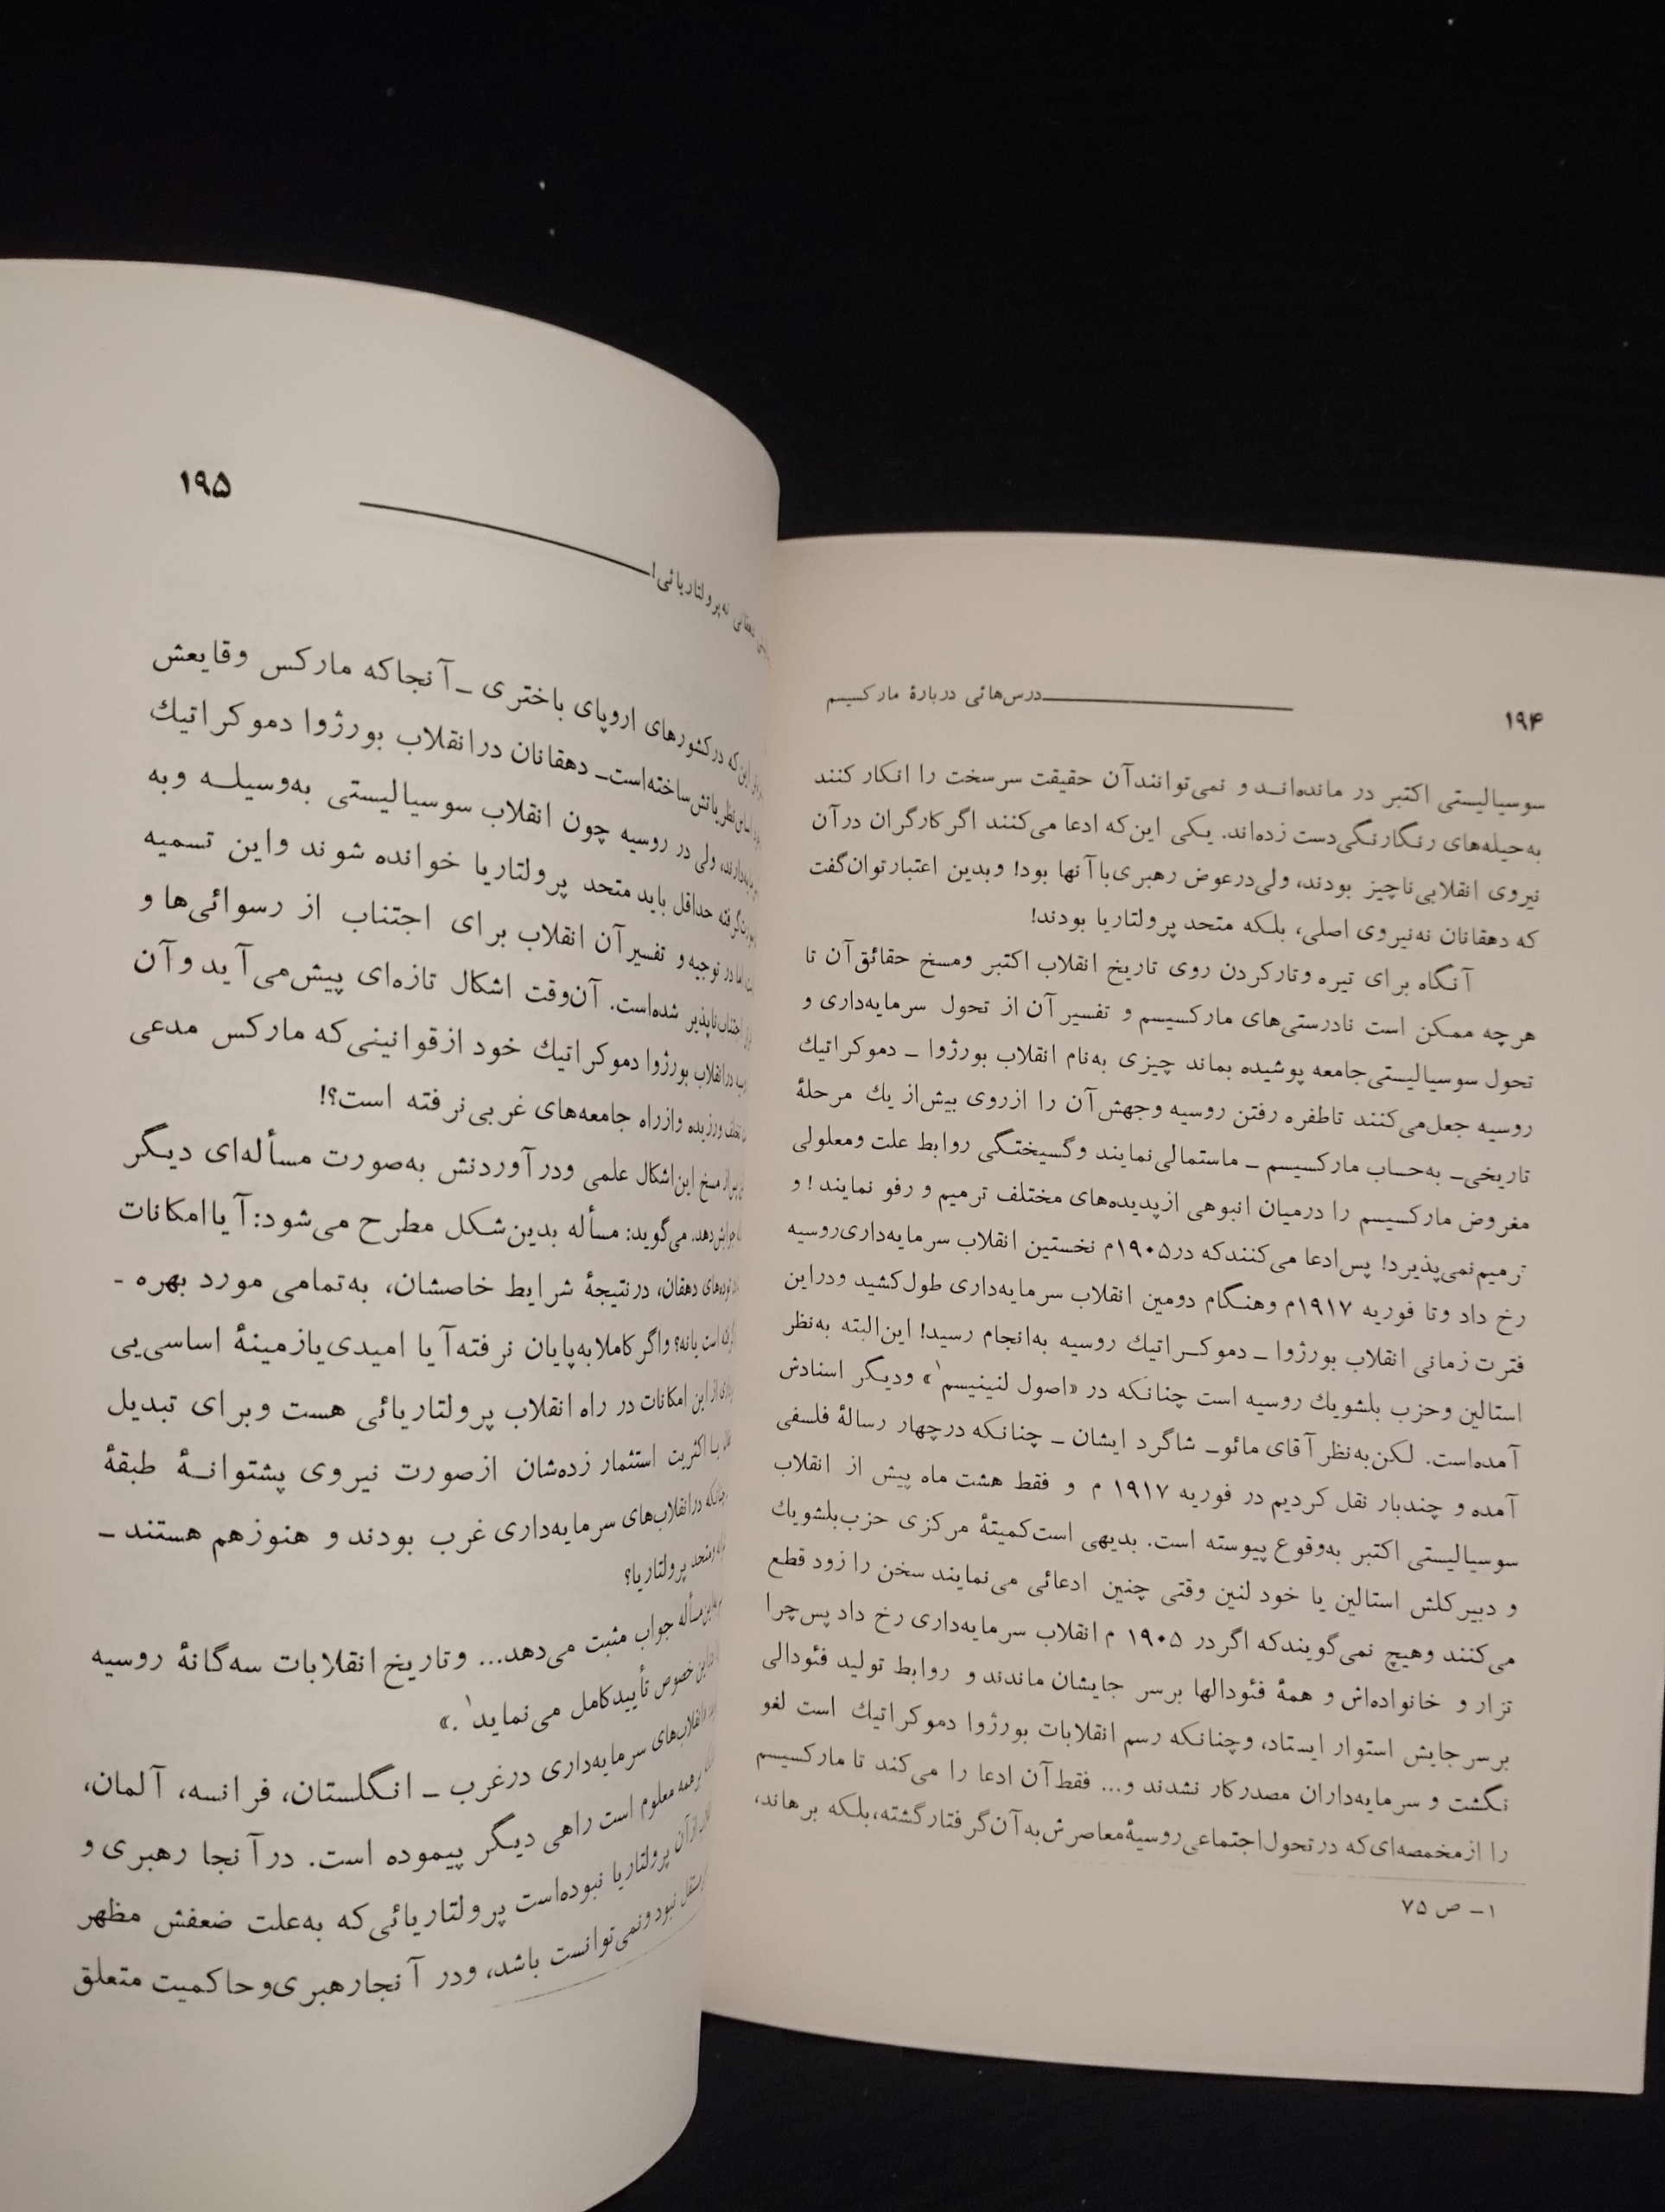 ۱۹۴
درس‌هائی دربارهٔ مارکسیسم
سوسیالیستی اکتبر در مانده‌اند و نمی‌توانند آن حقیقت سرسخت را انکار کنند
به‌حیله‌های رنگارنگی دست زده‌اند. یکی این‌که ادعا می‌کنند اگر کارگران در آن
نیروی انقلابی ناچیز بودند، ولی در عوض رهبری با آنها بود! و بدین اعتبار توان گفت
که دهقانان نه نیروی اصلی، بلکه متحد پرولتاریا بودند!
آنگاه برای تیره و تار کردن روی تاریخ انقلاب اکتبر و مسخ حقائق آن تا
هرچه ممکن است نادرستی‌های مارکسیسم و تفسیر آن از تحول سرمایه‌داری و
تحول سوسیالیستی جامعه پوشیده بماند چیزی به‌نام انقلاب بورژوا ـ دموکراتیك
روسیه جعل می‌کنند تا طفره رفتن روسیه و جهش آن را از روی بیش از یك مرحلهٔ
تاریخی ـ به‌حساب مارکسیسم ـ ماستمالی نمایند و گسیختگی روابط علت و معلولی
مغروض مارکسیسم را درمیان انبوهی از پدیده‌های مختلف ترمیم و رفو نمایند! و
ترمیم نمی‌پذیرد! پس ادعا می‌کنند که در ۱۹۰۵م نخستین انقلاب سرمایه‌داری روسیه
رخ داد و تا فوریه ۱۹۱۷م و هنگام دومین انقلاب سرمایه‌داری طول کشید و در این
فترت زمانی انقلاب بورژوا ـ دموکراتیك روسیه به‌انجام رسید! این البته به‌نظر
استالین و حزب بلشویك روسیه است چنانکه در «اصول لنینیسم۱» و دیگر اسنادش
آمده‌است. لکن به‌نظر آقای مائو ـ شاگرد ایشان ـ چنانکه در چهار رسالهٔ فلسفی
آمده و چندبار نقل کردیم در فوریه ۱۹۱۷ م و فقط هشت ماه پیش از انقلاب
سوسیالیستی اکتبر به‌وقوع پیوسته است. بدیهی است کمیتهٔ مرکزی حزب بلشویك
و دبیر کلش استالین یا خود لنین وقتی چنین ادعائی می‌نمایند سخن را زود قطع
می‌کنند و هیچ نمی‌گویند که اگر در ۱۹۰۵ م انقلاب سرمایه‌داری رخ داد پس چرا
تزار و خانواده‌اش و همهٔ فئودالها برسر جایشان ماندند و روابط تولید فئودالی
برسر جایش استوار ایستاد، و چنانکه رسم انقلابات بورژوا دموکراتیك است لغو
نگشت و سرمایه‌داران مصدر کار نشدند و... فقط آن ادعا را می‌کند تا مارکسیسم
را از مخمصه‌ای که در تحول اجتماعی روسیهٔ معاصرش به آن گرفتار گشته، بلکه برهاند،
۱ـ ص ۷۵
۱۹۵
دهقانی نه پرولتاریائی!
این‌که در کشورهای اروپای باختری ـ آنجا که مارکس وقایعش
نظریاتش ساخته‌است ـ دهقانان در انقلاب بورژوا دموکراتیك
ولی در روسیه چون انقلاب سوسیالیستی به‌وسیله و به
گرفته حداقل باید متحد پرولتاریا خوانده شوند و این تسمیه
در توجیه و تفسیر آن انقلاب برای اجتناب از رسوائی‌ها و
اجتناب‌ناپذیر شده‌است. آن‌وقت اشکال تازه‌ای پیش می‌آید و آن
در انقلاب بورژوا دموکراتیك خود از قوانینی که مارکس مدعی
تخلف ورزیده و از راه جامعه‌های غربی نرفته است؟!
از مسخ این اشکال علمی و در آوردنش به‌صورت مسأله‌ای دیگر
می‌گوید: مسأله بدین شکل مطرح می‌شود: آیا امکانات
توده‌های دهقان، در نتیجهٔ شرایط خاصشان، به‌تمامی مورد بهره ـ
است یا نه؟ و اگر کاملا به‌پایان نرفته آیا امیدی یا زمینهٔ اساسی‌یی
از این امکانات در راه انقلاب پرولتاریائی هست و برای تبدیل
اکثریت استثمار زده‌شان از صورت نیروی پشتوانهٔ طبقهٔ
چنانکه در انقلاب‌های سرمایه‌داری غرب بودند و هنوز هم هستند ـ
متحد پرولتاریا؟
مسأله جواب مثبت می‌دهد... و تاریخ انقلابات سه‌گانهٔ روسیه
این خصوص تأیید کامل می‌نماید۱.»
انقلاب‌های سرمایه‌داری در غرب ـ انگلستان، فرانسه، آلمان،
همه معلوم است راهی دیگر پیموده است. در آنجا رهبری و
از آن پرولتاریا نبوده‌است پرولتاریائی که به‌علت ضعفش مظهر
مستقل نبود و نمی‌توانست باشد، و در آنجا رهبری و حاکمیت متعلق